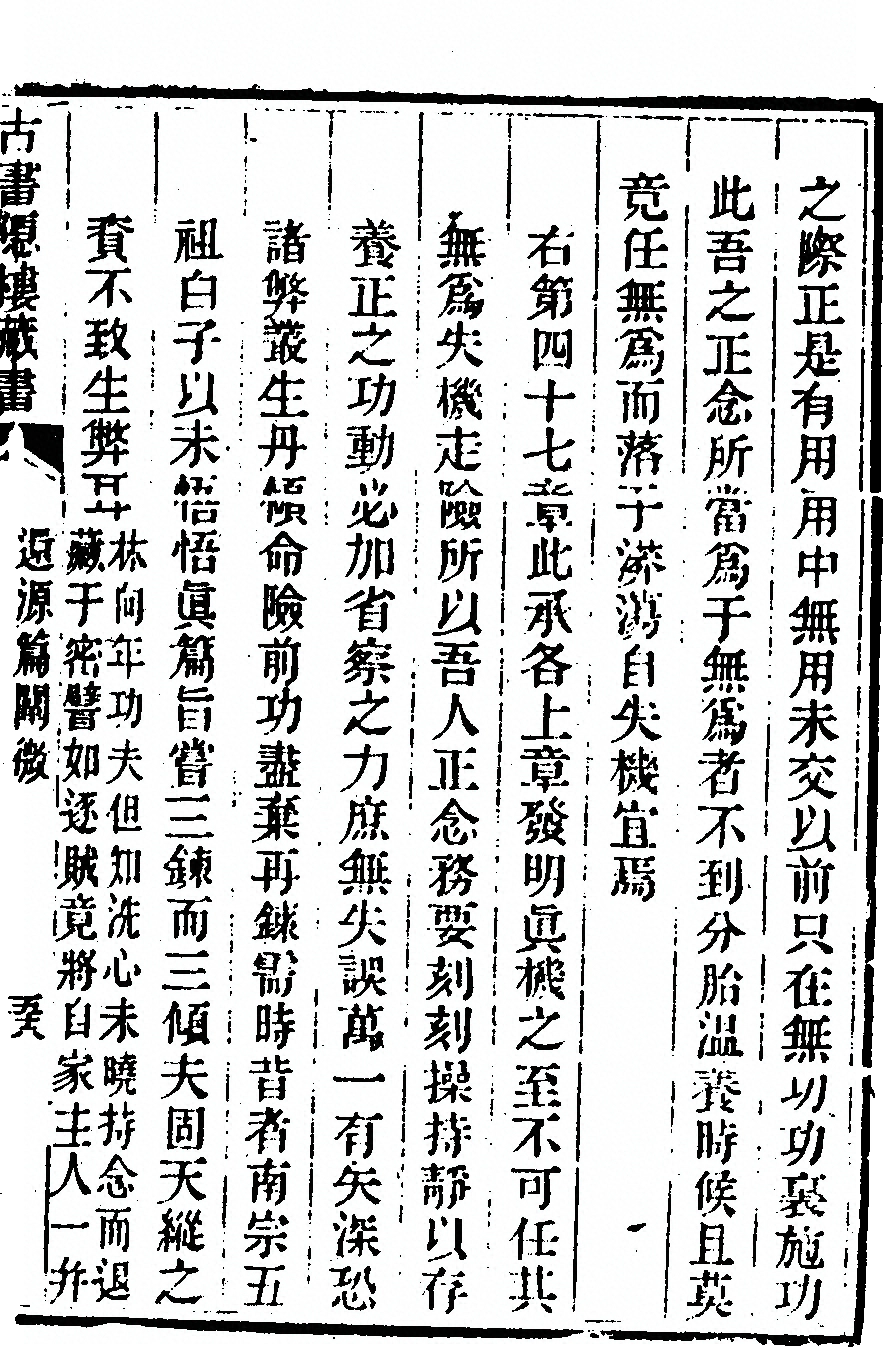 之際正是有用用中無用未交以前只在無功功裏施功
此吾之正念所當爲于無爲者不到分胎温養時候且莫
竞任無爲而落于漭蕩自失機宜焉
右第四十七章此承各上章發明眞機之至不可任其
無爲失機走險所以吾人正念務要刻刻操持靜以存
養正之功動必加省察之力庶無失誤萬一有矢深恐
諸弊叢生丹傾命險前功盡棄再鍊需時昔者南宗五
祖白子以未悟悟眞篇旨嘗三鍊而三傾夫固天縱之
資不致生弊耳
栋向年功夫但知洗心未曉持念而退
藏于密譬如逐賊竟將自家主人一并
古書隱樓藏書
還源篇闡微